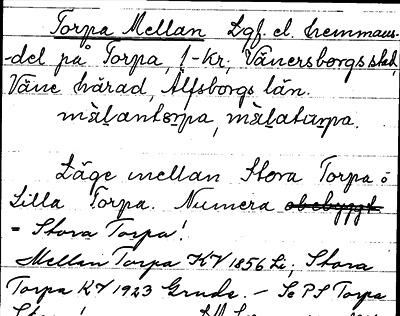 Torpa Mellan Lgf. el. hemmans-
-del på Torpa, 1-Kr; Vänersborgs stad,
Väne härad, Älfsborgs län.
mä̀lantɷrpa, mä̀latɷrpa.
Läge mellan Stora Torpa o
Lilla Torpa. Numera obebyggt
= Stora Torpa!
Mellan Torpa KV 1856 Li; Stora
Torpa KV 1923 Grude. – Se PS Torpa
Stora